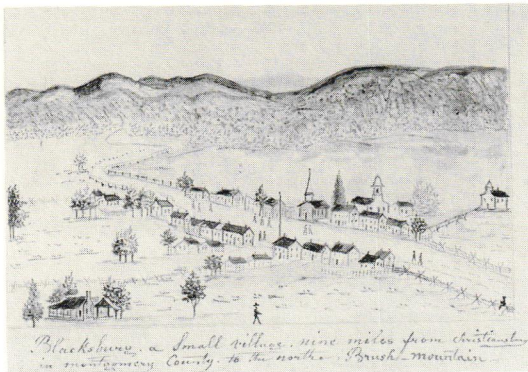 Blacksburg. a Small village. nine miles from christiansburg
in montgomery County. to the north. Brush-mountain